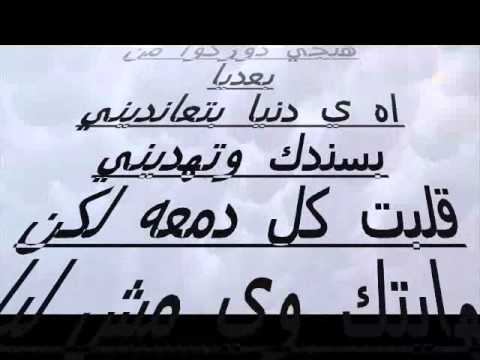 هيجي دوركوا من
بعديا
اه ي دنيا بتعانديني
بسندك وتهديني
قلبت كل دمعه لكن
وي مش ليا